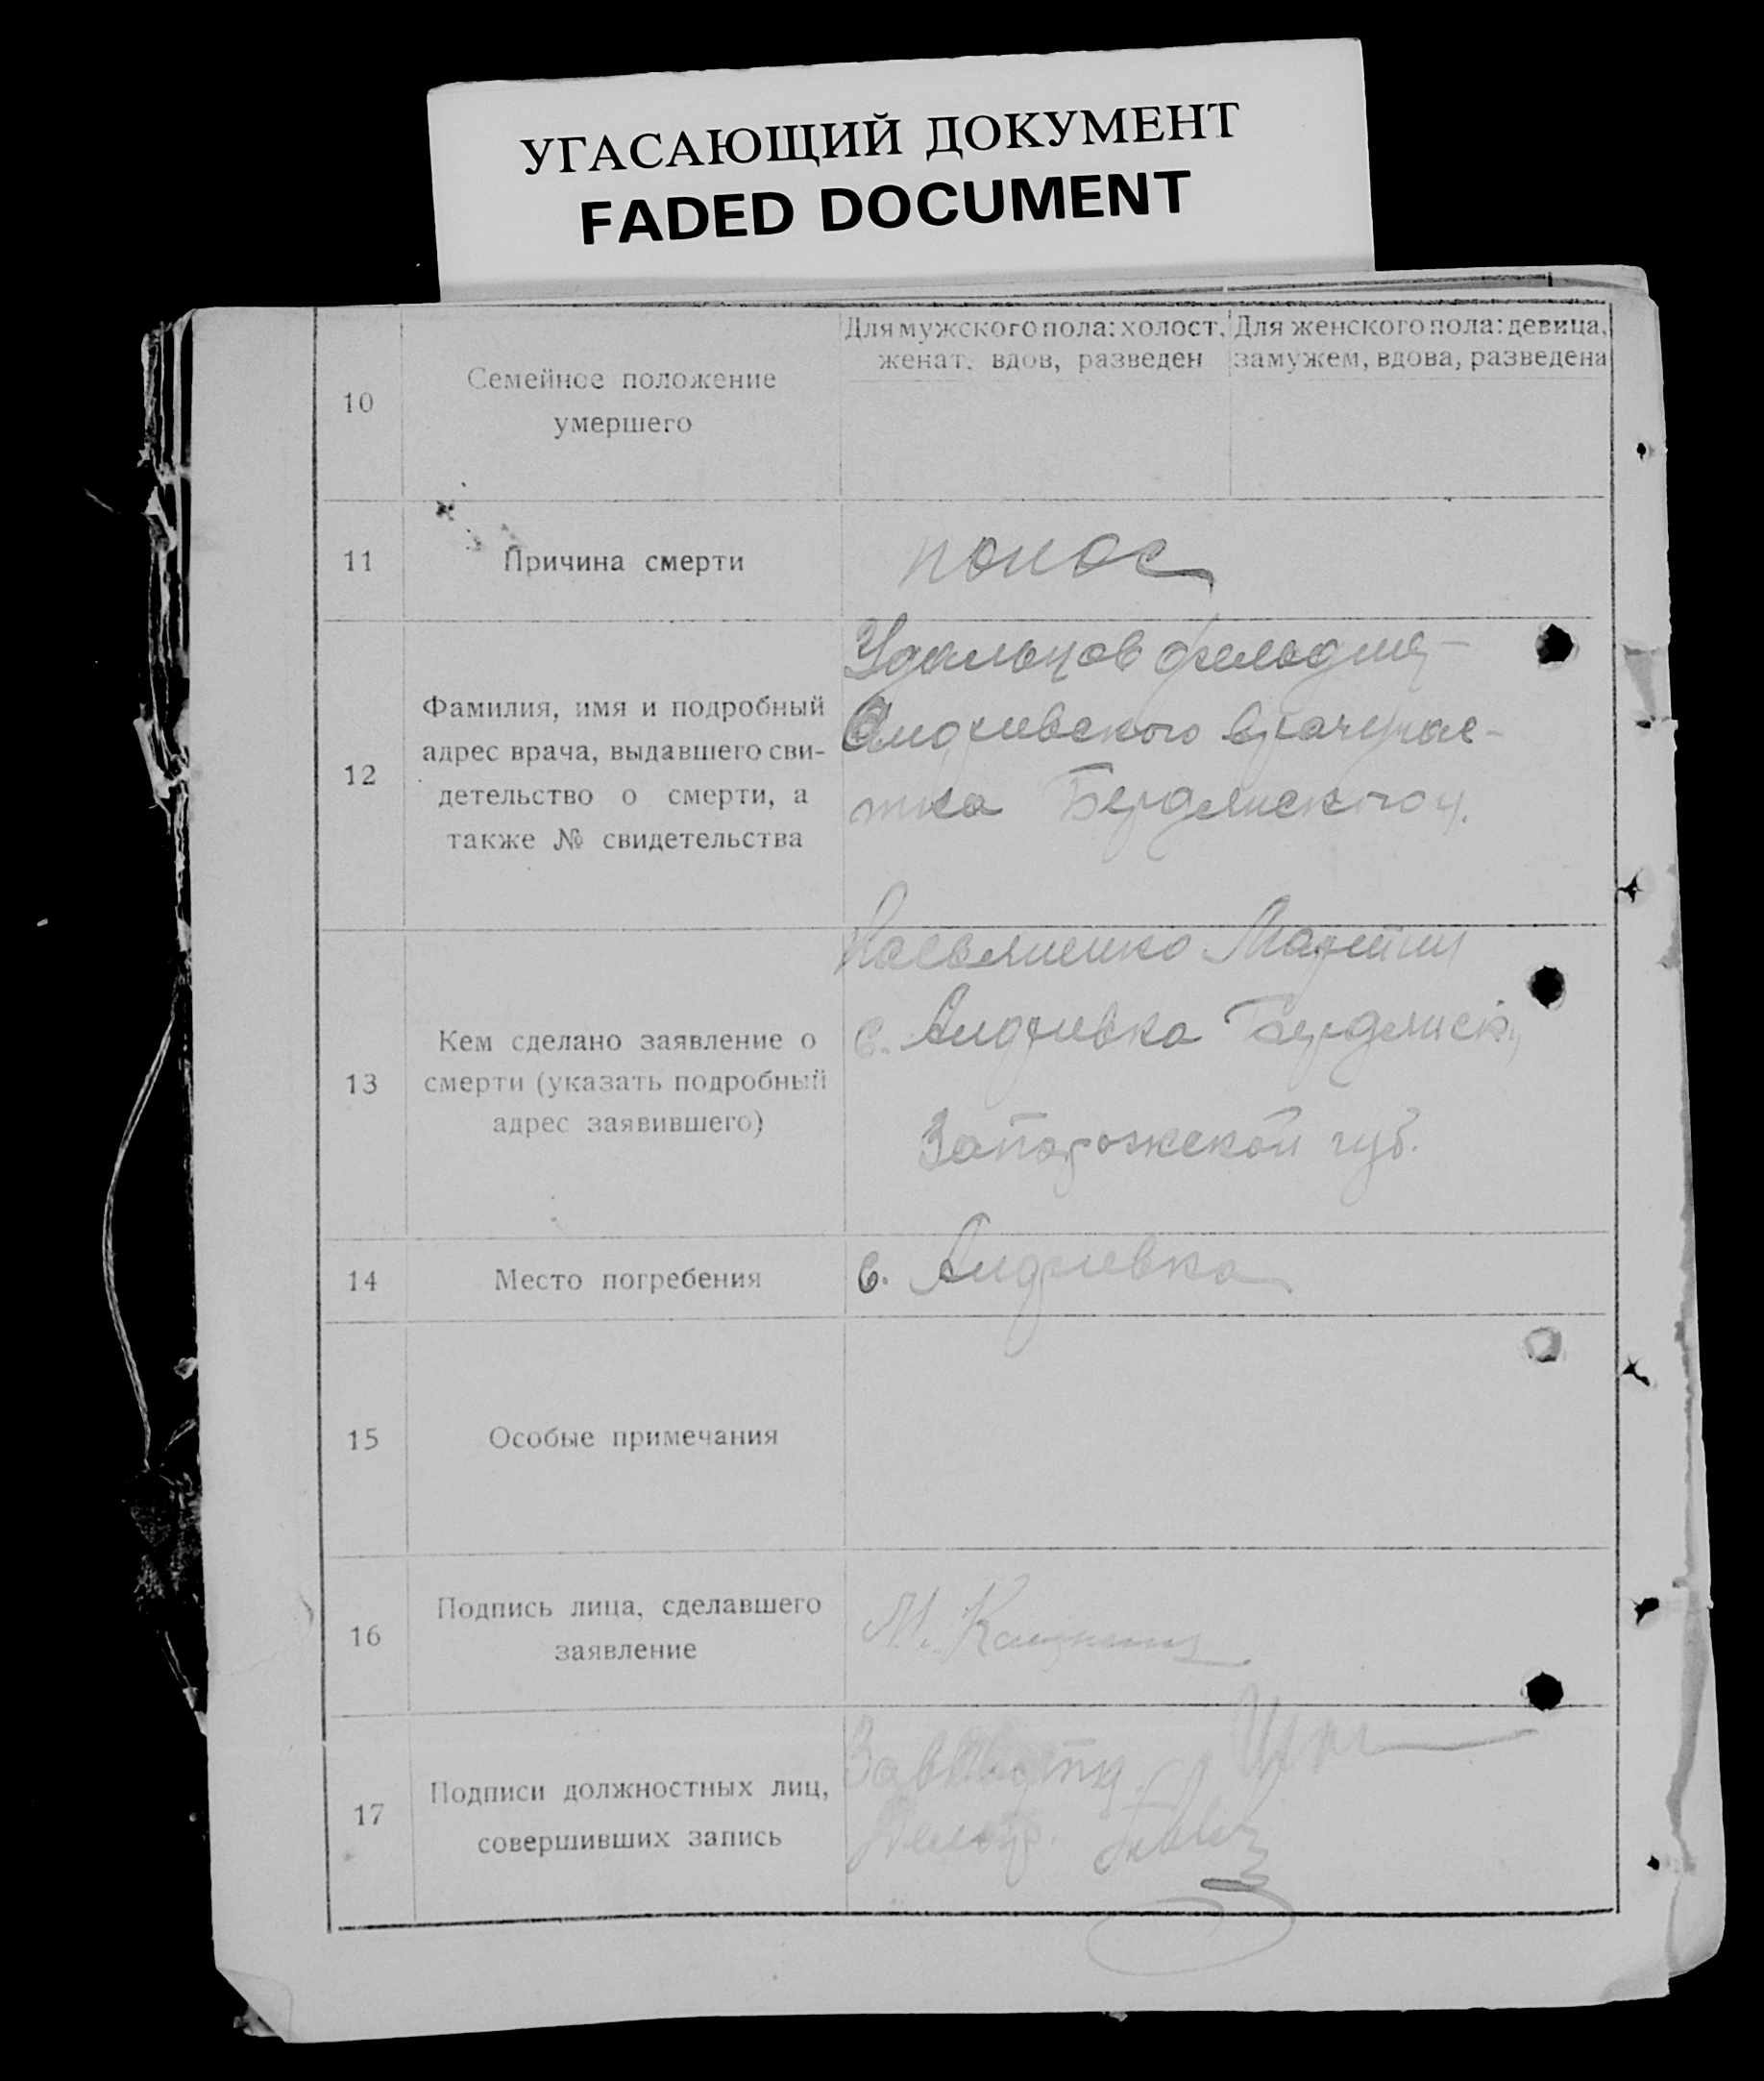 УГАСАЮЩИЙ ДОКУМЕНТ
FADED DOCUMENT
10
Семейное положение
умершего
Для мужского пола: холост,
женат, вдов, разведен
Для женского пола: девица,
замужем, вдова, разведена
11
Причина смерти
понос
12
Фамилия, имя и подробный
адрес врача, выдавшего сви-
детельство о смерти, а
также № свидетельства
Удальцов фельдшер
Андреевского врачучас-
тка Бердянского
13
Кем сделано заявление о
смерти (указать подробный
адрес заявившего)
с. Андреевка Бердянск.
Запорожской губ.
14
Место погребения
с. Андреевка
15
Особые примечания
16
Подпись лица, сделавшего
заявление
М.
17
Подписи должностных лиц,
совершивших запись